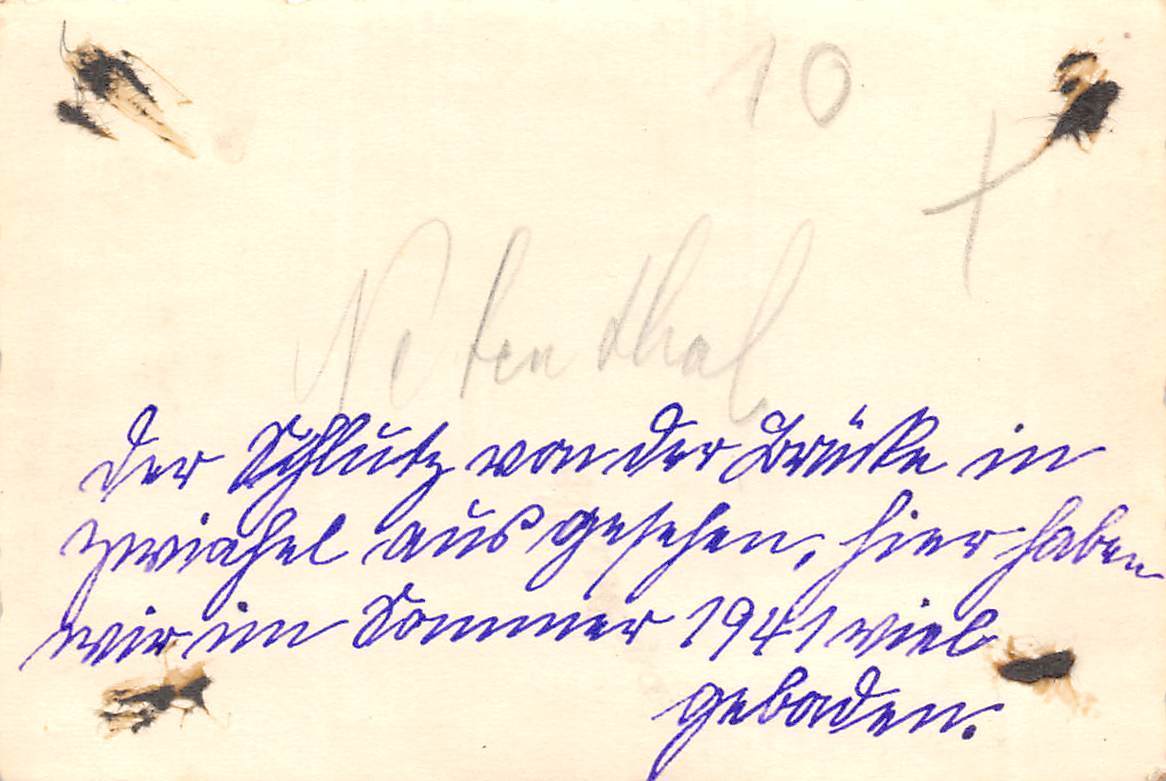 10
Netenthal
der Schlutz von der Brücke in
Zwiahel aus gesehen, hier haben
wir im Sommer 1941 viel
gebaden.